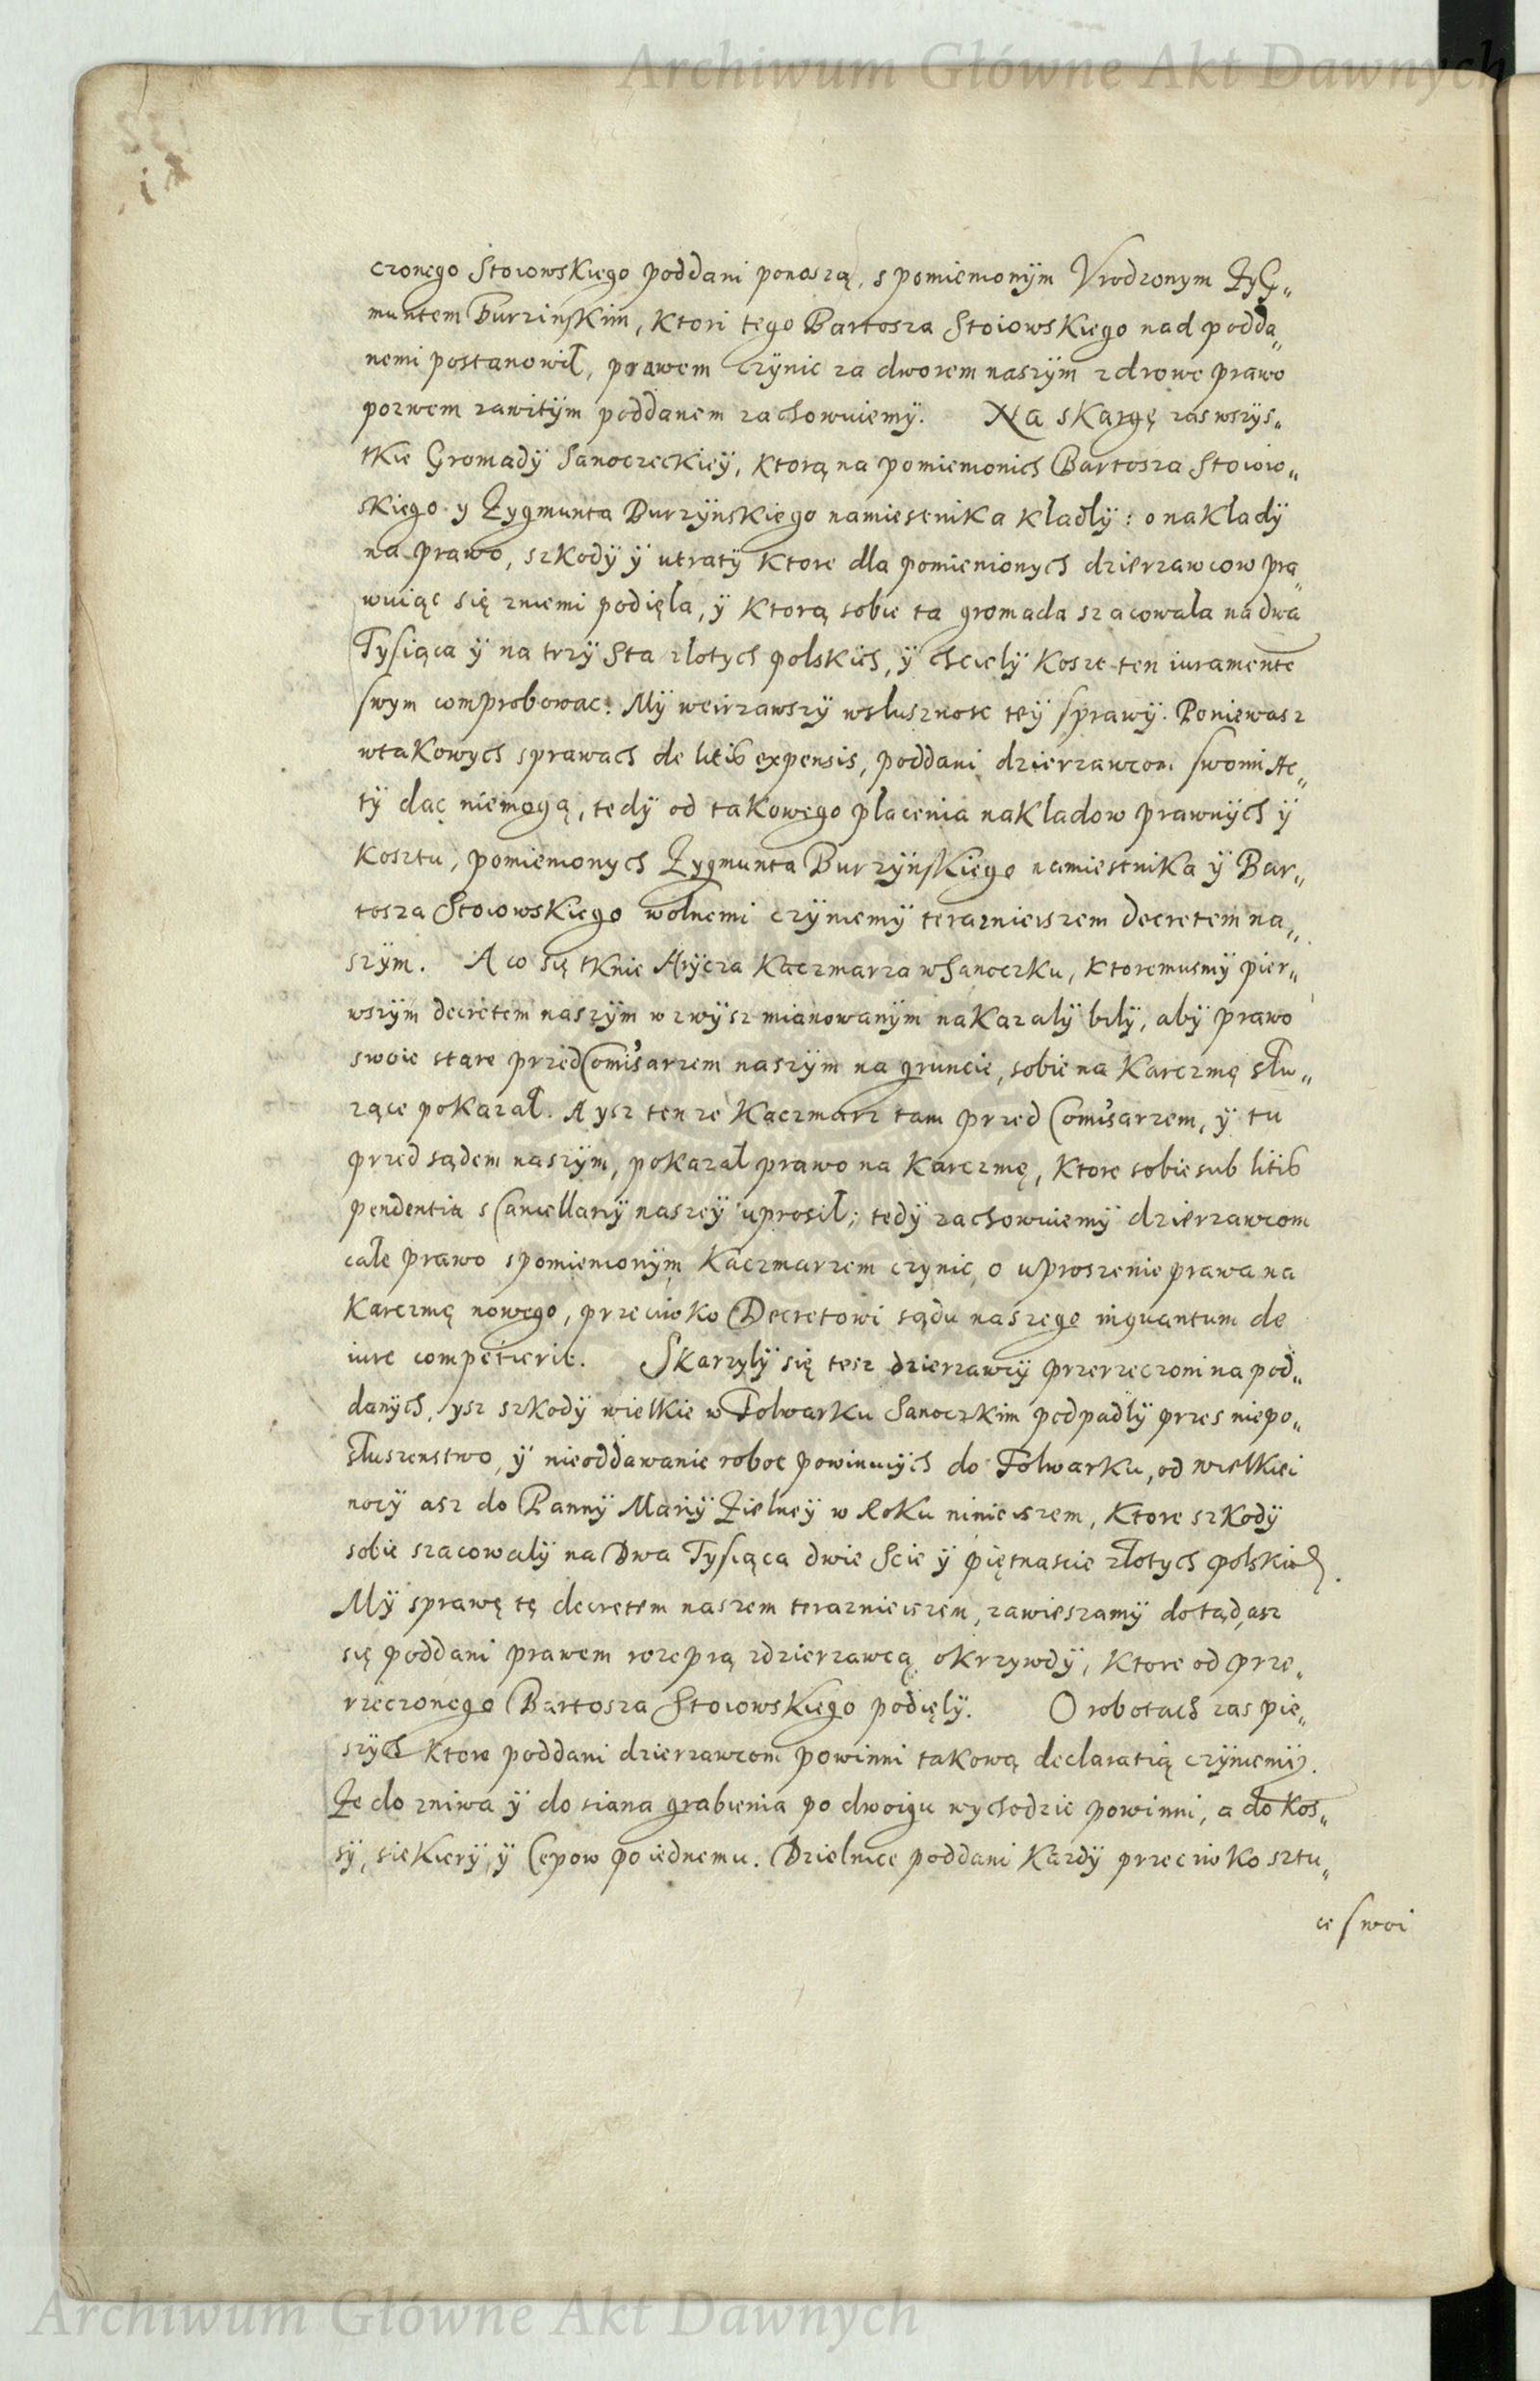 Archiwum Główne Akt Dawnych
czonego Stoiowskiego poddani ponoszą, s pomienionÿm Vrodzonym ZyG„
muntem Burzinskim, Ktori tego Bartosza Stoiowskiego nad podda„
nemi postanowił, prawem czÿnic za dworem naszÿm zdrowe prawo
pozwem zawitÿm poddanem zachowuiemÿ. Na skargę zas wszÿs„
tkie Gromadÿ Sanoczeckieÿ, Ktorą na pomienionich Bartosza Stoiow„
skiego y Zygmunta Burzÿnskiego namiestnika kładłÿ: o nakładÿ
na prawo, szkodÿ ÿ utratÿ Ktore dla pomienionych dzierzawcow pra„
wuiąc się zniemi podięla, ÿ Ktorą sobie ta gromada szacowała na dwa
Tysiąca ÿ na trzÿ sta złotych polskich, ÿ chcielÿ Koszt ten iuramente
swym comprobowac. Mÿ weirzawszÿ wsłusznosc teÿ sprawÿ. Poniewasz
wtakowych sprawach de litis expensis, poddani dzierzawcom swoim Ac„
tÿ dac niemogą, tedÿ od takowego płacenia nakładow prawnÿch ÿ
kosztu, pomienionych Zygmunta Burzÿnskiego namiestnika ÿ Bar„
tosza Stoiowskiego wolnemi czÿniemÿ teraznieiszem decretem na„
szÿm. A co się tknie Hrÿcza Kaczmarza w Sanoczku, Ktoremusmÿ pier„
wszÿm decretem naszÿm wzwÿsz mianowanÿm nakazalÿ bilÿ, abÿ prawo
swoie stare przed Comisarzem naszÿm na gruncie, sobie na Karczmę słu„
zące pokazał. A ysz ten ze Kaczmarz tam przed Comisarzem, ÿ tu
przed sądem naszÿm, pokazał prawo na Karczmę, Ktore sobie sub litis
pendentia s Cancellariÿ naszeÿ uprosił; tedÿ zachowuiemÿ dzierzawcom
całe prawo spomienionÿm Kaczmarzem czynic, o uproszenie prawa na
Karczmę nowego, przeciwko Decretowi sądu naszego inquantum de
iure competierit. Skarzylÿ się tesz dzierzawcÿ przerzeczoni na pod„
danÿch, ysz szkodÿ wielkie w Folwarku Sanoczkim podpadłÿ przes niepo„
słuszenstwo, ÿ nieoddawanie robot powinnÿch do Folwarku, od wielkiei
nocÿ asz do Pannÿ Mariÿ Zielneÿ w Roku ninieiszem, Ktore szkodÿ
sobie szacowalÿ na Dwa Tysiąca dwie scie ÿ piętnascie złotych polskich.
Mÿ sprawę tę decretem naszem teraznieiszem, zawieszamÿ dotąd, asz
się poddani prawem rozeprą zdzierzawcą okrzywdÿ, Ktore od prze„
rzeczonego Bartosza Stoiowskiego podięlÿ. O robotach zas pie„
szÿch Ktore poddani dzierzawcom powinni takową declaratią czÿniemÿ.
Ze do zniwa ÿ do siana grabienia po dwoigu wychodzic powinni, a do Kos„
sÿ, siekierÿ, ÿ Cepow po iednemu. Dzielnice poddani Kazdÿ przeciwko sztu„
ce swoi
Archiwum Główne Akt Dawnych